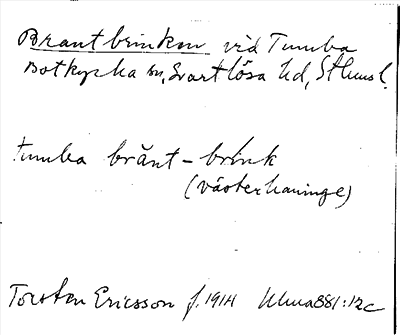 Brantbrinken vid Tumba
Botkyrka sn, Svartlösa hd, Sthms l.
tumba bränt-brink
(västerhaninge)
Torsten Ericsson f. 1914 Uluma 881:12c